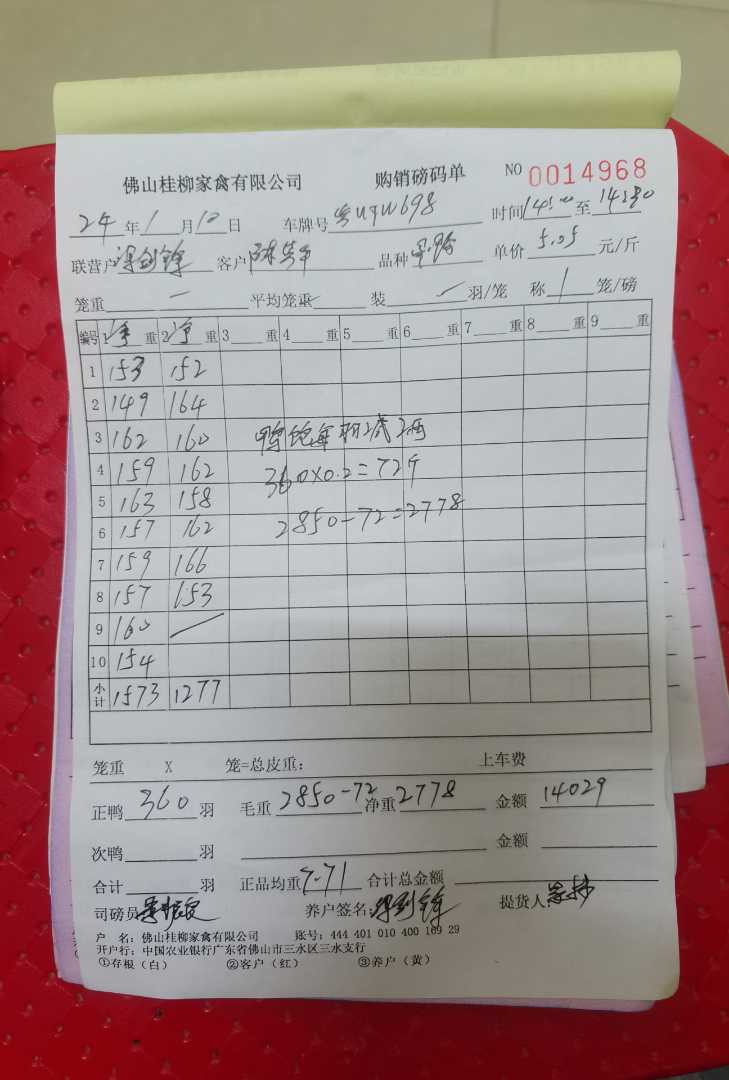 佛山桂柳家禽有限公司 购销磅码单 NO 0014968
24年1月10日 车牌号 时间 14:00 至 14:30
联营户 客户 品种 单价 5.05 元/斤
笼重 — 平均笼重 装 羽/笼 称 1 笼/磅
编号 1 净 重 2 净 重 3 重 4 重 5 重 6 重 7 重 8 重 9 重
1 153 152
2 149 164
3 162 160 鸭饱每羽减2两
4 159 162 360×0.2=72斤
5 163 158
6 157 162 2850-72=2778
7 159 166
8 157 153
9 160
10 154
小计 1573 1277
笼重 X 笼=总皮重： 上车费
正鸭 360 羽 毛重 2850-72 净重 2778 金额 14029
次鸭 羽 金额
合计 羽 正品均重 7.71 合计总金额
司磅员 养户签名: 提货人
户 名: 佛山桂柳家禽有限公司 账号: 444 401 010 400 169 29
开户行: 中国农业银行广东省佛山市三水区三水支行
①存根（白） ②客户（红） ③养户（黄）